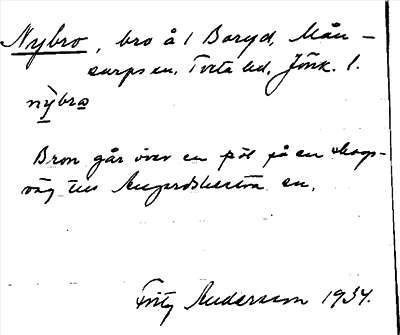 Nybro, bro å 1 Boryd, Mån-
sarps sn. Tveta hd, Jönk. l.
nỳbro
Bron går över en på en skogs-
väg till Angerdshestra sn.
Fritz Andersson 1934.